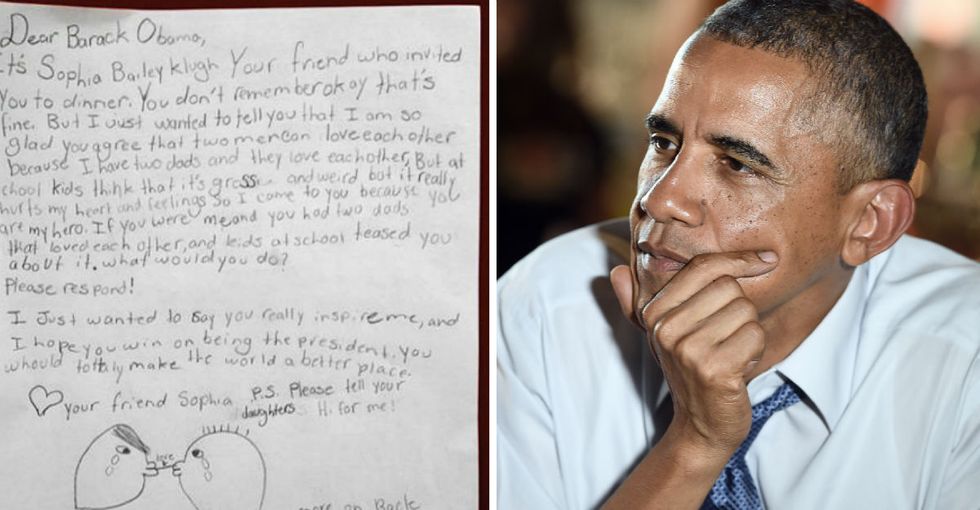 Dear Barack Obama,
It's Sophia Bailey klugh Your friend who invited
You to dinner. You don't remember okay that's
fine. But I Just wanted to tell you that I am so
glad you agree that two men can love each other
because I have two dads and they love each other, But at
school kids think that it's gross and weird but it really
hurts my heart and feelings So I come to you because you
are my hero. If you were me and you had two dads
that loved each other, and kids at school teased you
about it. what would you do?
Please respond!
I Just wanted to say you really inspire me, and
I hope you win on being the president. you
whould tottaly make the world a better place.
your friend Sophia P.S. Please tell your
daughters Hi for me!
love
more on Back